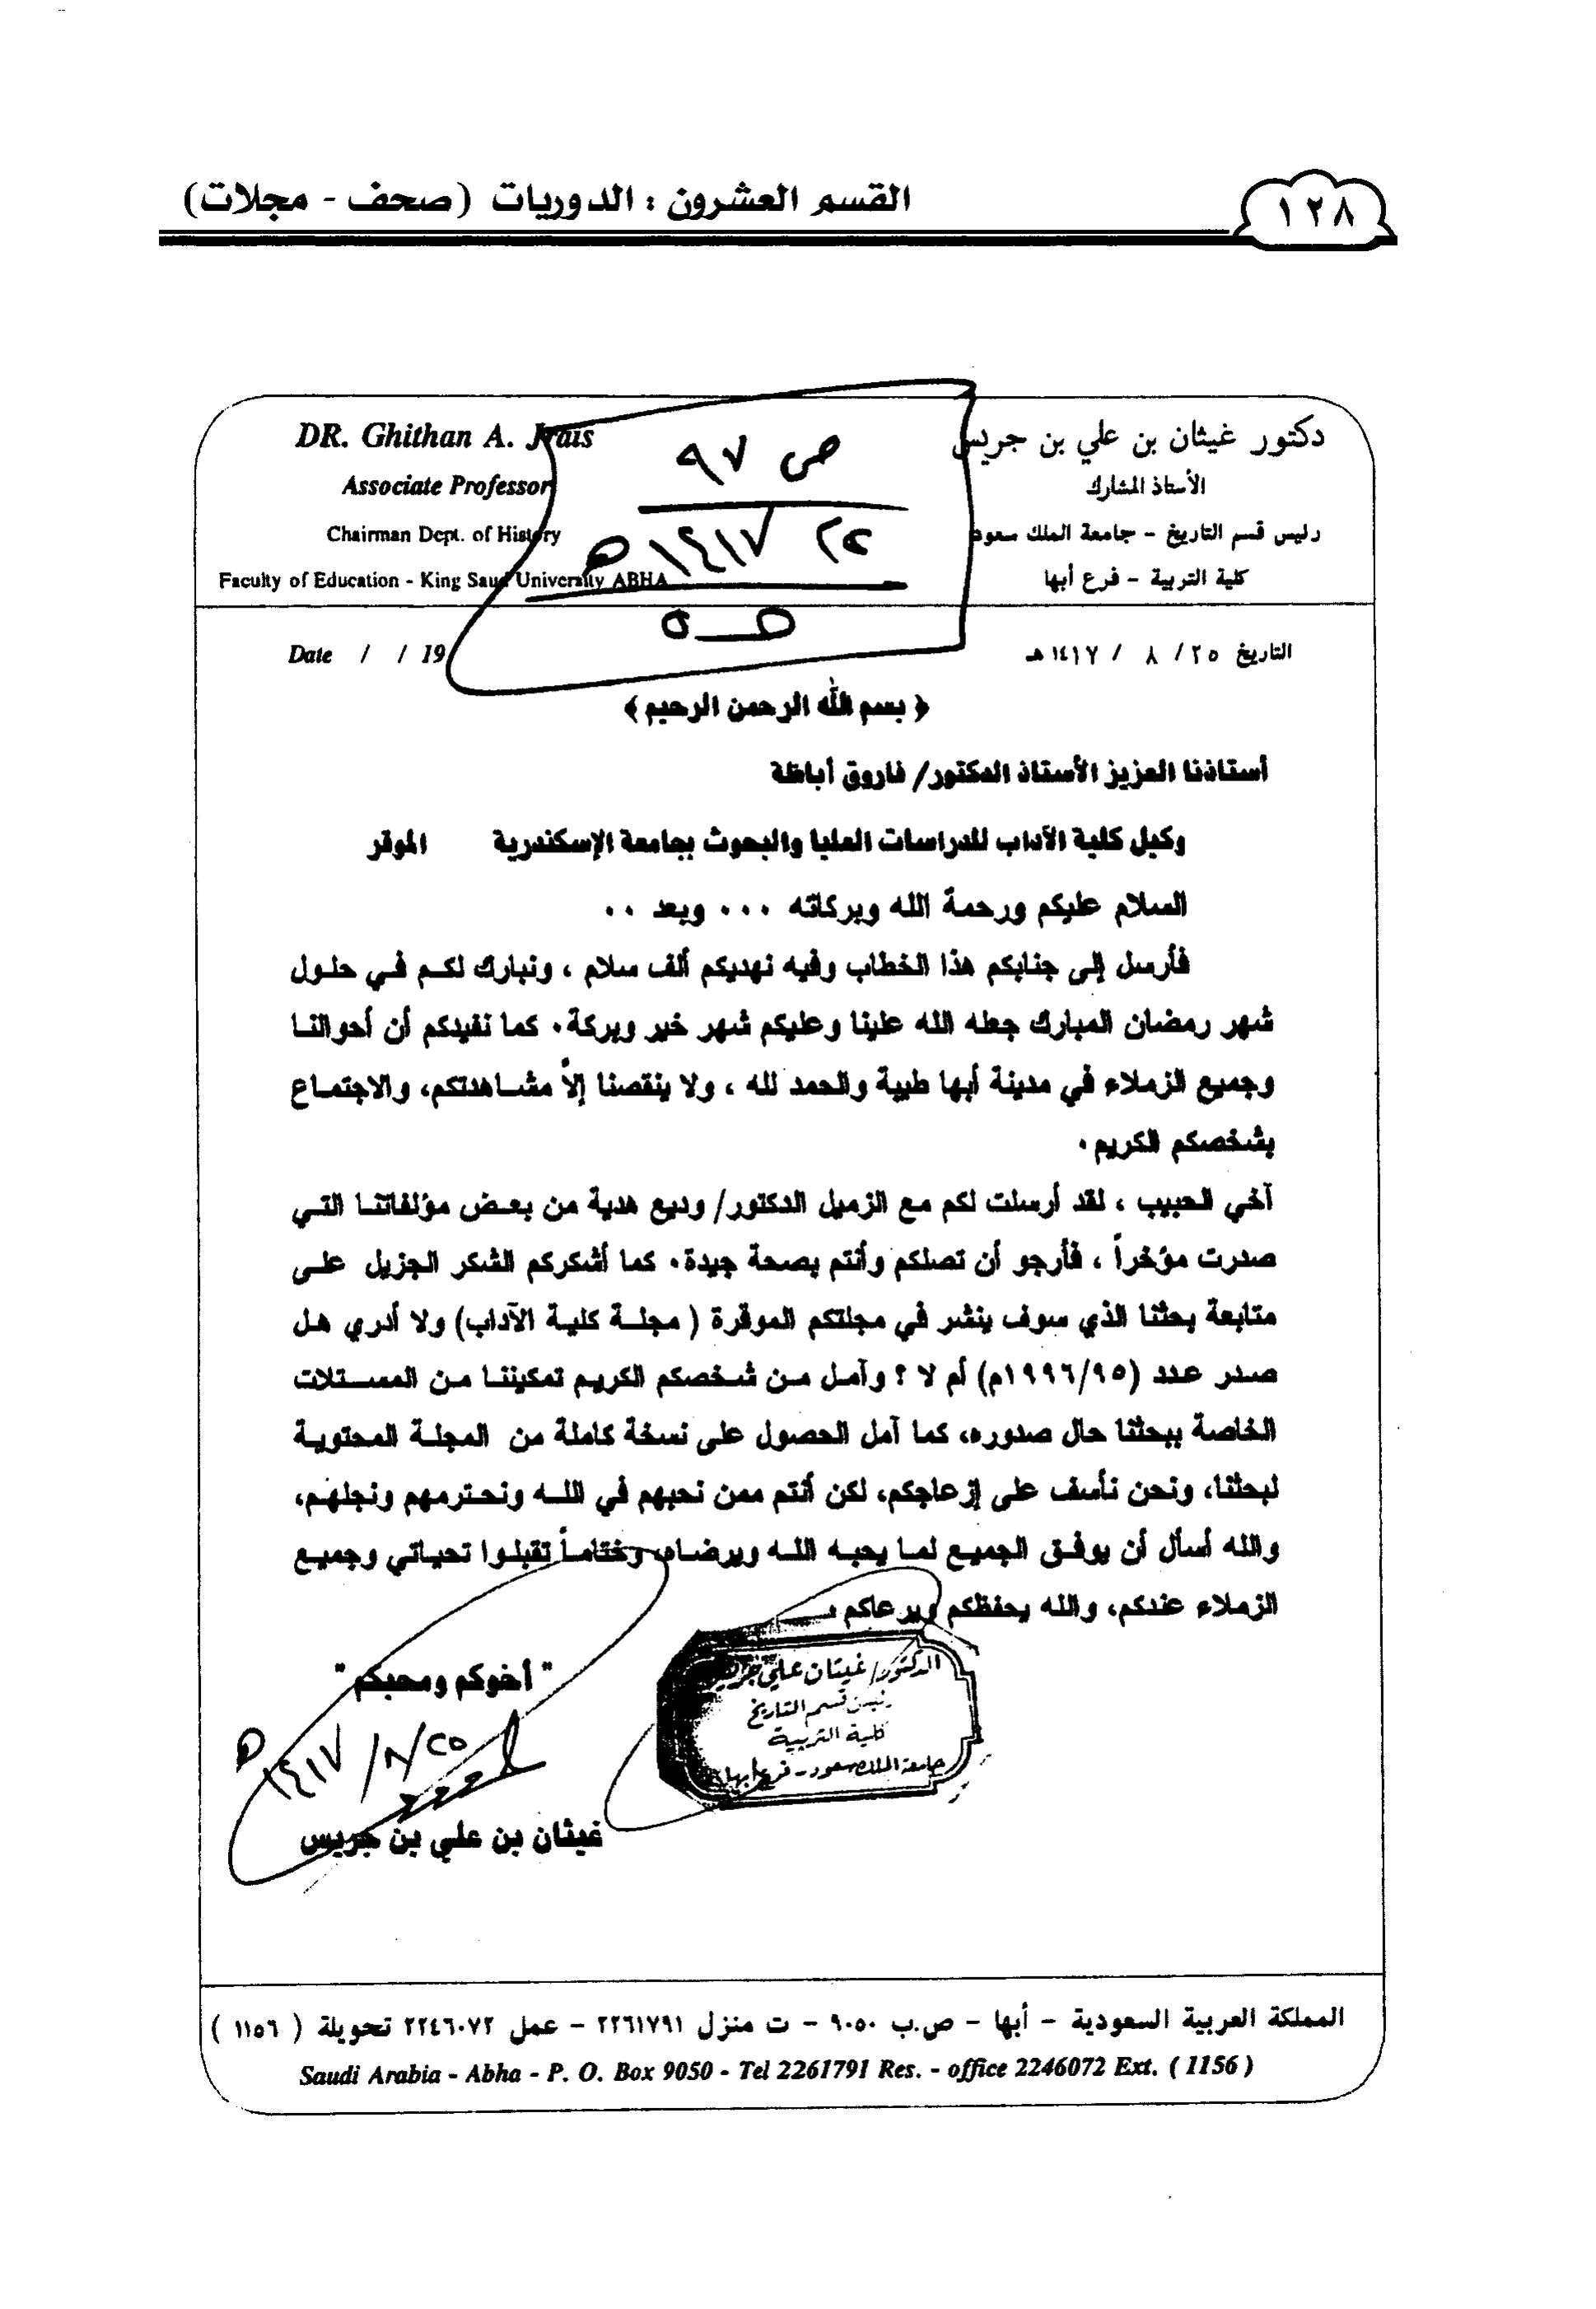 ١٢٨
القسم العشرون : الدوريات (صحف - مجلات)
دكتور غيثان بن علي بن جريس
الأستاذ المشارك
رئيس قسم التاريخ - جامعة الملك سعود
كلية التربية - فرع أبها
DR. Ghithan A. Jrais
Associate Professor
Chairman Dept. of History
Faculty of Education - King Saud University ABHA
ص ٩٧
١٤١٧
التاريخ ٢٥ / ٨ / ١٤١٧ هـ
Date / / 19
﴿ بسم الله الرحمن الرحيم ﴾
أستاذنا العزيز الأستاذ الدكتور/ فاروق أباظة
وكيل كلية الآداب للدراسات العليا والبحوث بجامعة الإسكندرية الموقر
السلام عليكم ورحمة الله وبركاته ٠٠٠ وبعد ٠٠
فأرسل إلى جنابكم هذا الخطاب وفيه نهديكم ألف سلام ، ونبارك لكم في حلول
شهر رمضان المبارك جعله الله علينا وعليكم شهر خير وبركة٠ كما نفيدكم أن أحوالنا
وجميع الزملاء في مدينة أبها طيبة والحمد لله ، ولا ينقصنا إلاّ مشاهدتكم، والاجتماع
بشخصكم الكريم٠
أخي الحبيب ، لقد أرسلت لكم مع الزميل الدكتور/ وديع هدية من بعض مؤلفاتنا التي
صدرت مؤخراً ، فأرجو أن تصلكم وأنتم بصحة جيدة٠ كما أشكركم الشكر الجزيل على
متابعة بحثنا الذي سوف ينشر في مجلتكم الموقرة ( مجلة كلية الآداب) ولا أدري هل
صدر عدد (١٩٩٦/٩٥م) أم لا ؟ وآمل من شخصكم الكريم تمكيننا من المستلات
الخاصة ببحثنا حال صدوره، كما آمل الحصول على نسخة كاملة من المجلة المحتوية
لبحثنا، ونحن نأسف على إزعاجكم، لكن أنتم ممن نحبهم في الله ونحترمهم ونجلهم،
والله أسأل أن يوفق الجميع لما يحبه الله ويرضاه وختاماً تقبلوا تحياتي وجميع
الزملاء عندكم، والله يحفظكم ويرعاكم
" أخوكم ومحبكم "
٢٥/٨/١٤١٧هـ
غيثان بن علي بن جريس
الدكتور/ غيثان علي جريس
رئيس قسم التاريخ
كلية التربية
جامعة الملك سعود - فرع أبها
المملكة العربية السعودية - أبها - ص.ب ٩٠٥٠ - ت منزل ٢٢٦١٧٩١ - عمل ٢٢٤٦٠٧٢ تحويلة ( ١١٥٦ )
Saudi Arabia - Abha - P. O. Box 9050 - Tel 2261791 Res. - office 2246072 Ext. ( 1156 )